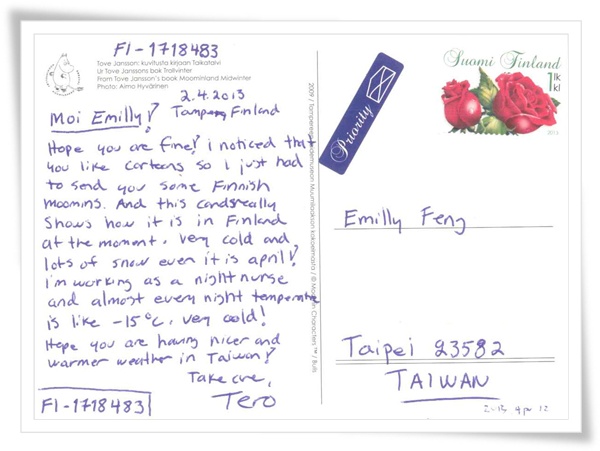 FI-1718483
Tove Jansson: kuvitusta kirjaan Taikatalvi
Ur Tove Janssons bok Trollvinter
From Tove Jansson's book Moominland Midwinter
Photo: Aimo Hyvärinen
2.4.2013
Tampere, Finland
Moi Emilly!
Hope you are fine! I noticed that
you like cartoons so I just had
to send you some Finnish
moomins. And this card really
shows how it is in Finland
at the moment. Very cold and
lots of snow even it is april!
I'm working as a night nurse
and almost every night temperature
is like -15°C. Very cold!
Hope you are having nicer and
warmer weather in Taiwan!
Take care,
Tero
FI-1718483
2009 / Tampereen taidemuseon Muumilaakson kokoelmista / © Moomin Characters™ / Bulls
Priority
Suomi Finland
1 lk
kl
2013
Emilly Feng
Taipei 23582
TAIWAN